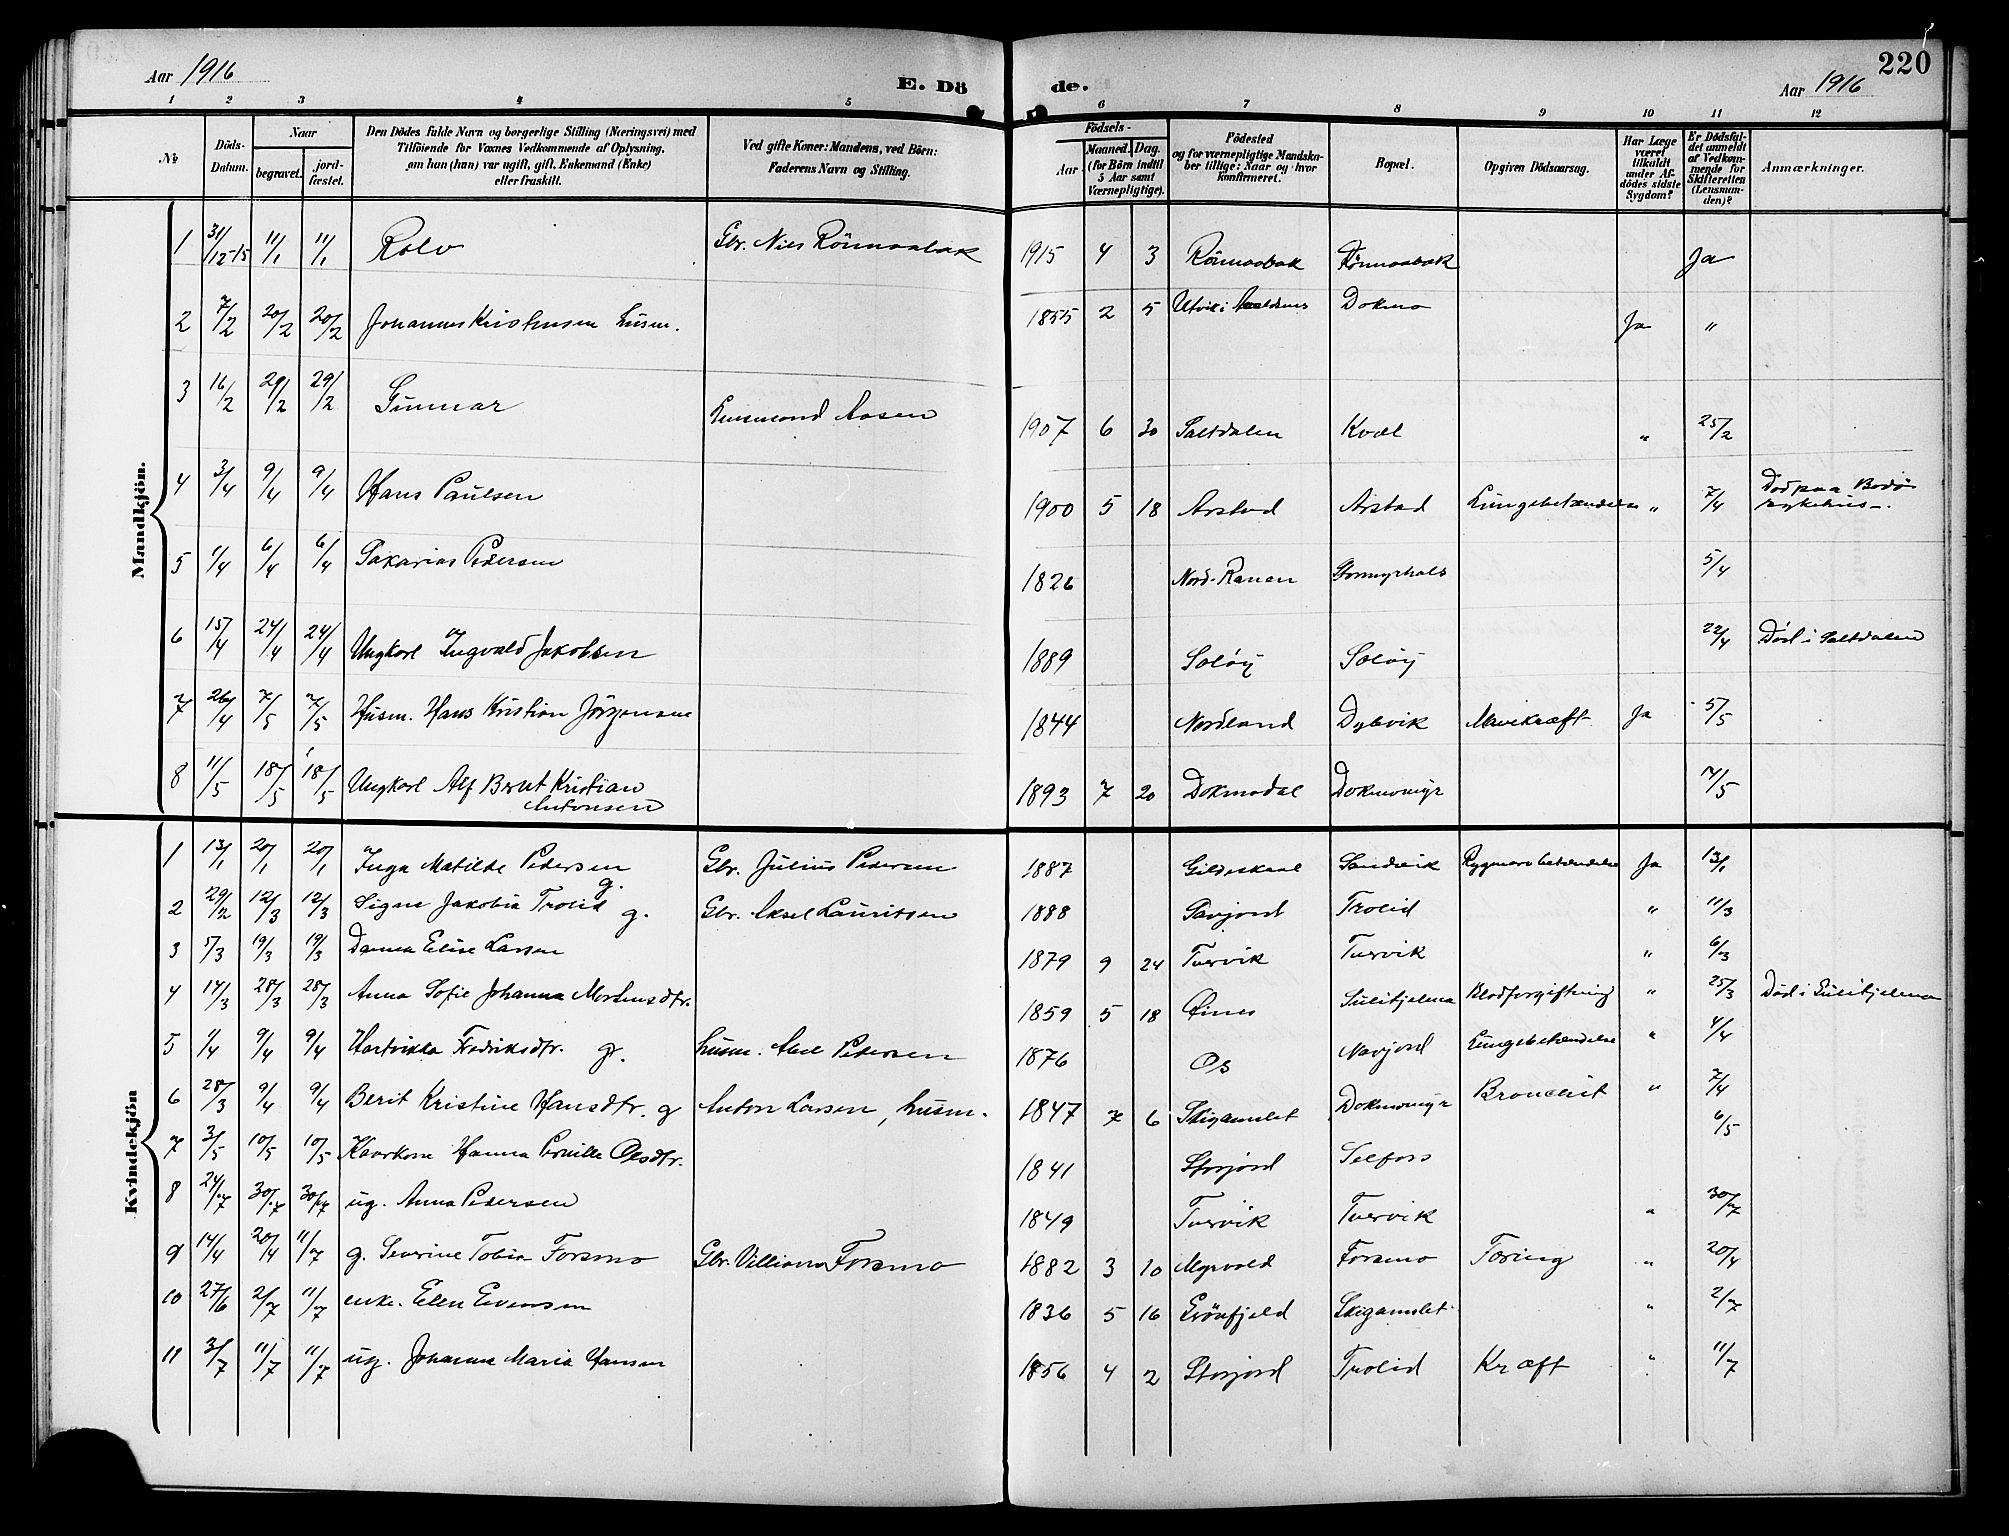 Aar 1916
E. Dö
de.
Aar 1916
220
1 2 3 4 5 6 7 8 9 10 11 12
No
Döds-Datum.
Naar
begravet.
jord-fæstet.
Den Dödes fulde Navn og borgerlige Stilling (Næringsvei) med
Tilföiende for Voxnes Vedkommende af Oplysning,
om han (hun) var ugift, gift, Enkemand (Enke)
eller fraskilt.
Ved gifte Koner: Mandens, ved Börn:
Faderens Navn og Stilling.
Födsels-
Aar.
Maaned.
Dag.
(for Börn indtil
5 Aar samt
Værnepligtige).
Födested
og for værnepligtige Mandska-
ber tillige: Naar og hvor
konfirmeret.
Bopæl.
Opgiven Dödsaarsag.
Har Læge
været
tilkaldt
under Af-
dödes sidste
Sygdom?
Er Dödsfal-
det anmeldt
af Vedkom-
mende for
Skifteretten
(Lensman-
den)?
Anmærkninger.
Mandkjön.
1 31/12-15 11/1 11/1 Rolv Gbr. Nils Rönnaabak 1915 4 3 Rönnaabak Rönnaabak Ja
2 7/2 20/2 20/2 Johannes Kristensen husm. 1855 2 5 Utvik i Dokmo Ja "
3 16/2 29/2 29/2 Gunnar Lensmand Aasen 1907 6 30 Saltdalen Kvæl " 25/2
4 3/4 9/4 9/4 Hans Paulsen 1900 5 18 Arstad Arstad Lungebetændelse " 7/4 Död paa Bodö
sykehus.
5 1/4 6/4 6/4 Sakarias Pedersen 1826 Nord-Ranen Stormyrhals 5/4
6 15/4 24/4 24/4 Ungkarl Ingvald Jakobsen 1889 Soløy Soløy 22/4 Död i Saltdalen
7 26/4 7/5 7/5 Husm. Hans Kristian Jörgensen 1844 Nordland Dybvik Mavekræft Ja 5/5
8 11/5 18/5 18/5 Ungkarl Alf Bernt Kristian
Antonsen 1893 7 20 Dokmodal Dokmomyr 17/5
Kvindekjön
1 13/1 20/1 20/1 Inga Matilde Pedersen g. Gbr. Julius Pedersen 1887 Gildeskaal Sandvik Rygmarvsbetændelse Ja 13/1
2 29/2 12/3 12/3 Signe Jakobia Trolid g. Gbr. Aksel Lauritsen 1888 Savjord Trolid " 11/3
3 5/3 19/3 19/3 Danna Elise Larsen 1879 9 24 Tvervik Tvervik " 6/3
4 14/3 28/3 28/3 Anna Sofie Johanna Mortensdtr. 1859 5 18 Øines Sulitjelma Blodforgiftning " 25/3 Död i Sulitjelma
5 1/4 9/4 9/4 Hartvikka Fredriksdtr. g. husm. Axel Pedersen 1876 Os Navjord Lungebetændelse " 4/4
6 28/3 9/4 9/4 Berit Kristine Hansdtr. g Anton Larsen, husm. 1847 7 6 Skigamslet Dokmomyr Bronchit " 7/4
7 3/5 10/5 10/5 Kaarkone Hanna Pernille Olsdtr. 1841 Storjord Selfors 6/5
8 24/7 30/7 30/7 ug. Anna Pedersen 1849 Tvervik Tvervik " 30/7
9 14/4 20/4 11/7 g. Severine Tobia Forsmo Gbr. Villiam Forsmo 1882 3 10 Myrvold Forsmo Tæring " 20/4
10 27/6 2/7 11/7 enke. Elen Evensen 1836 5 16 Grönfjeld Skigamslet " 2/7
11 3/7 11/7 11/7 ug. Johanna Maria Hansen 1856 4 2 Storjord Trolid Kræft " 11/7